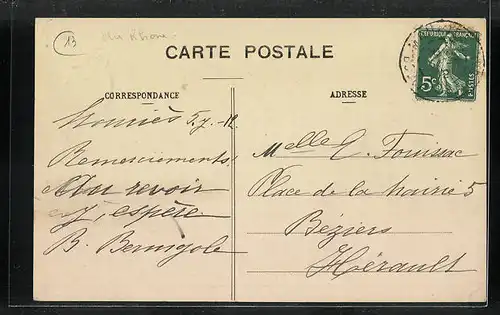 13
CARTE POSTALE
REPUBLIQUE FRANÇAISE
5c
POSTES
CORRESPONDANCE
ADRESSE
5.7.-12
Remerciements!
Au revoir
j'espère
B.
Melle E. Fouissac
Place de la Mairie 5
Béziers
Hérault